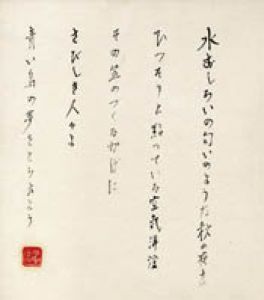 水おしろいの匂いのような秋の夜さ
ひつそりと點つている空気洋燈
その笠のつくるかげに
さびしき人々よ
青い鳥の夢をとらえよう